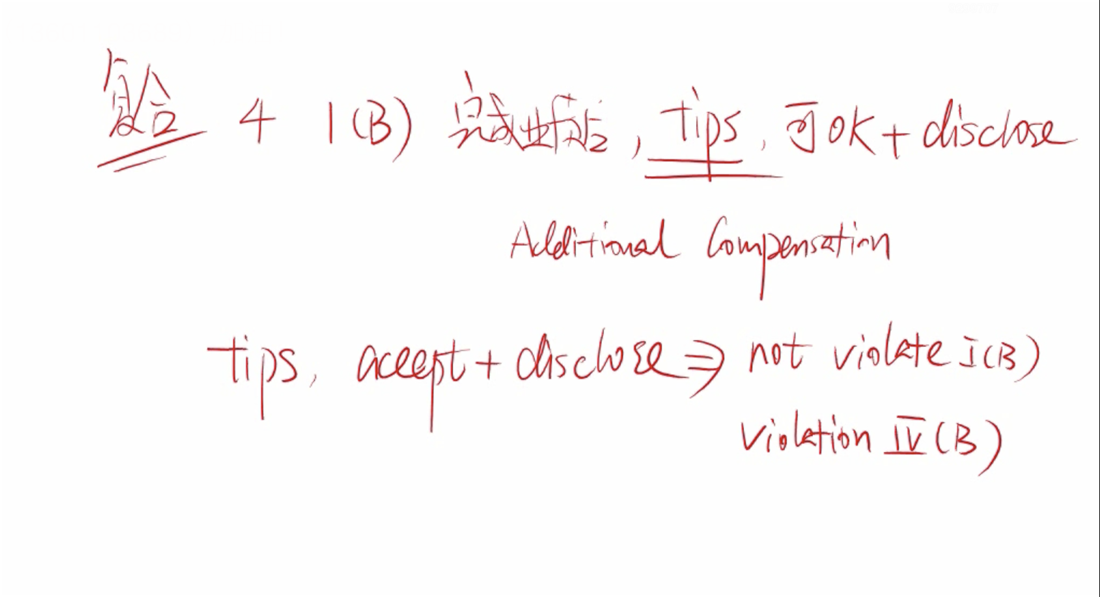 复合 4 I(B) 完成业绩后, tips, 可OK + disclose
Additional Compensation
tips, accept + disclose ⇒ not violate I(B)
Violation IV(B)